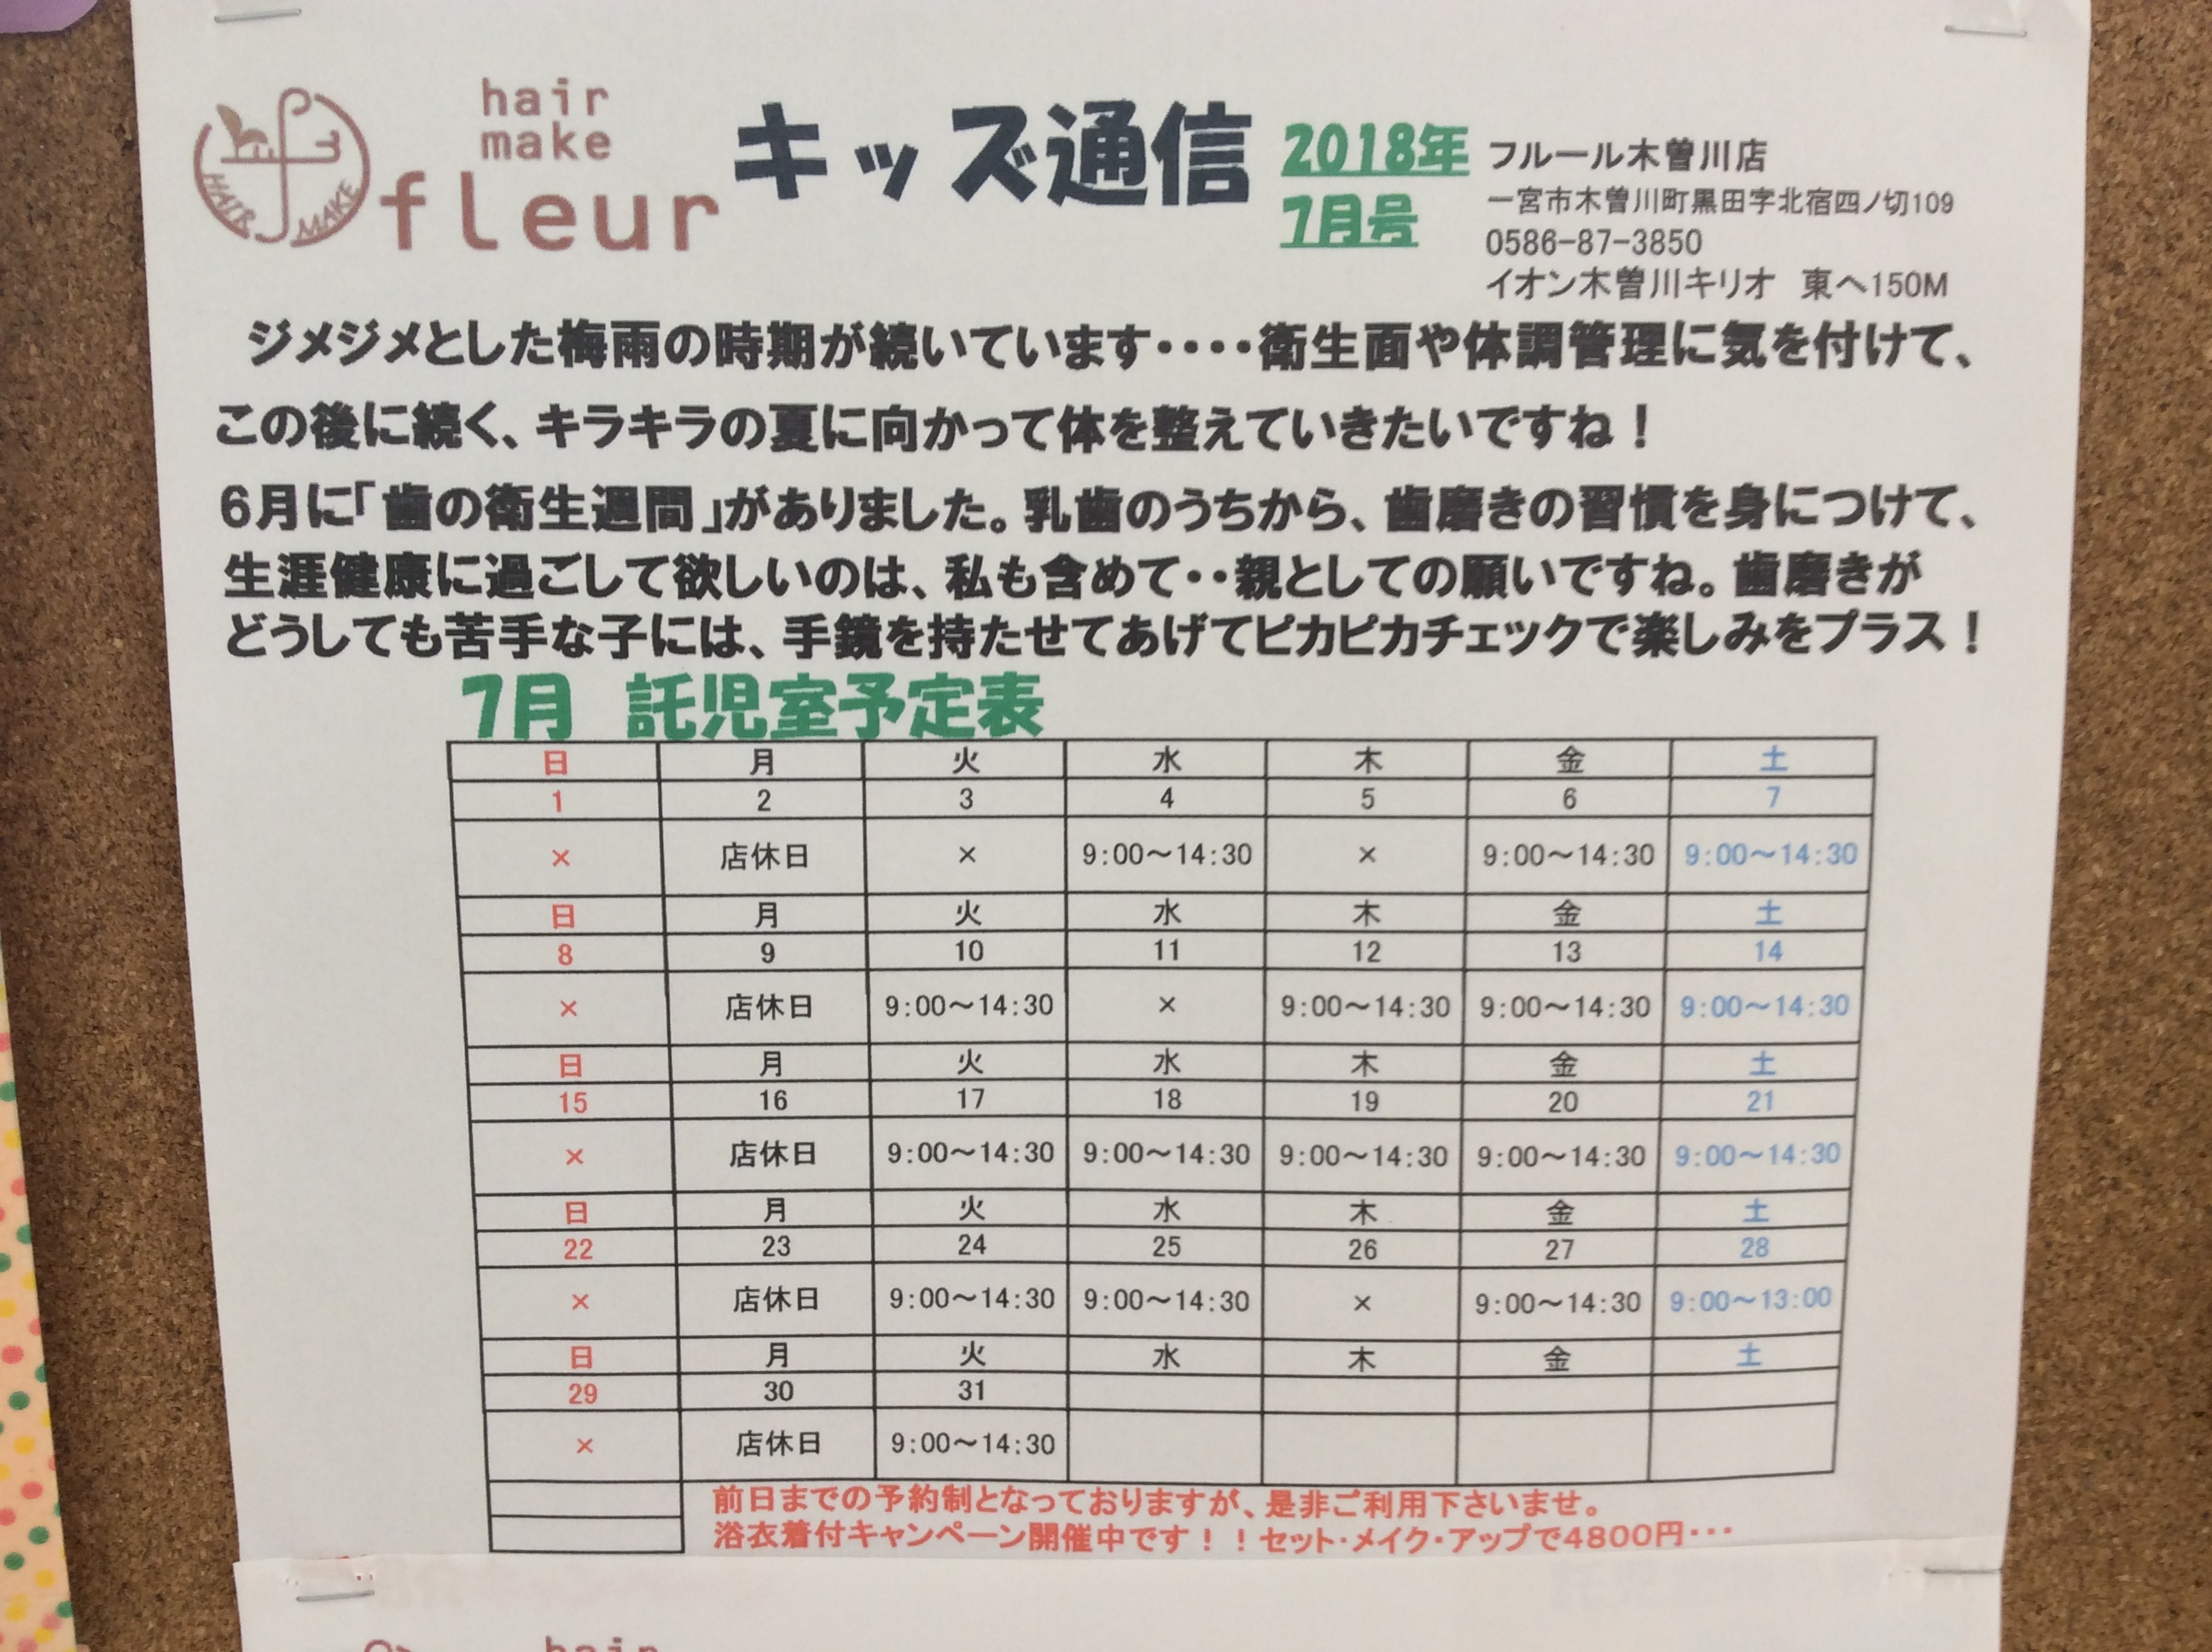 HAIR MAKE
hair
make
fleur
キッズ通信
2018年
7月号
フルール木曽川店
一宮市木曽川町黒田字北宿四ノ切109
0586-87-3850
イオン木曽川キリオ 東へ150M
ジメジメとした梅雨の時期が続いています・・・・衛生面や体調管理に気を付けて、
この後に続く、キラキラの夏に向かって体を整えていきたいですね！
6月に「歯の衛生週間」がありました。乳歯のうちから、歯磨きの習慣を身につけて、
生涯健康に過ごして欲しいのは、私も含めて・・親としての願いですね。歯磨きが
どうしても苦手な子には、手鏡を持たせてあげてピカピカチェックで楽しみをプラス！
7月 託児室予定表
日 月 火 水 木 金 土
1 2 3 4 5 6 7
× 店休日 × 9:00～14:30 × 9:00～14:30 9:00～14:30
日 月 火 水 木 金 土
8 9 10 11 12 13 14
× 店休日 9:00～14:30 × 9:00～14:30 9:00～14:30 9:00～14:30
日 月 火 水 木 金 土
15 16 17 18 19 20 21
× 店休日 9:00～14:30 9:00～14:30 9:00～14:30 9:00～14:30 9:00～14:30
日 月 火 水 木 金 土
22 23 24 25 26 27 28
× 店休日 9:00～14:30 9:00～14:30 × 9:00～14:30 9:00～13:00
日 月 火 水 木 金 土
29 30 31
× 店休日 9:00～14:30
前日までの予約制となっておりますが、是非ご利用下さいませ。
浴衣着付キャンペーン開催中です！！セット・メイク・アップで4800円・・・
hair